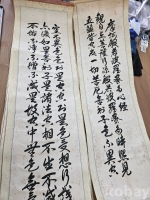 摩訶般若波羅蜜多心經
觀自在菩薩行深般若波羅蜜多時照見
五蘊皆空度一切苦厄舍利子色不異空
空不異色色即是空空即是色受想行識
亦復如是舍利子是諸法空相不生不滅
不垢不淨不增不減是故空中無色無
cobay